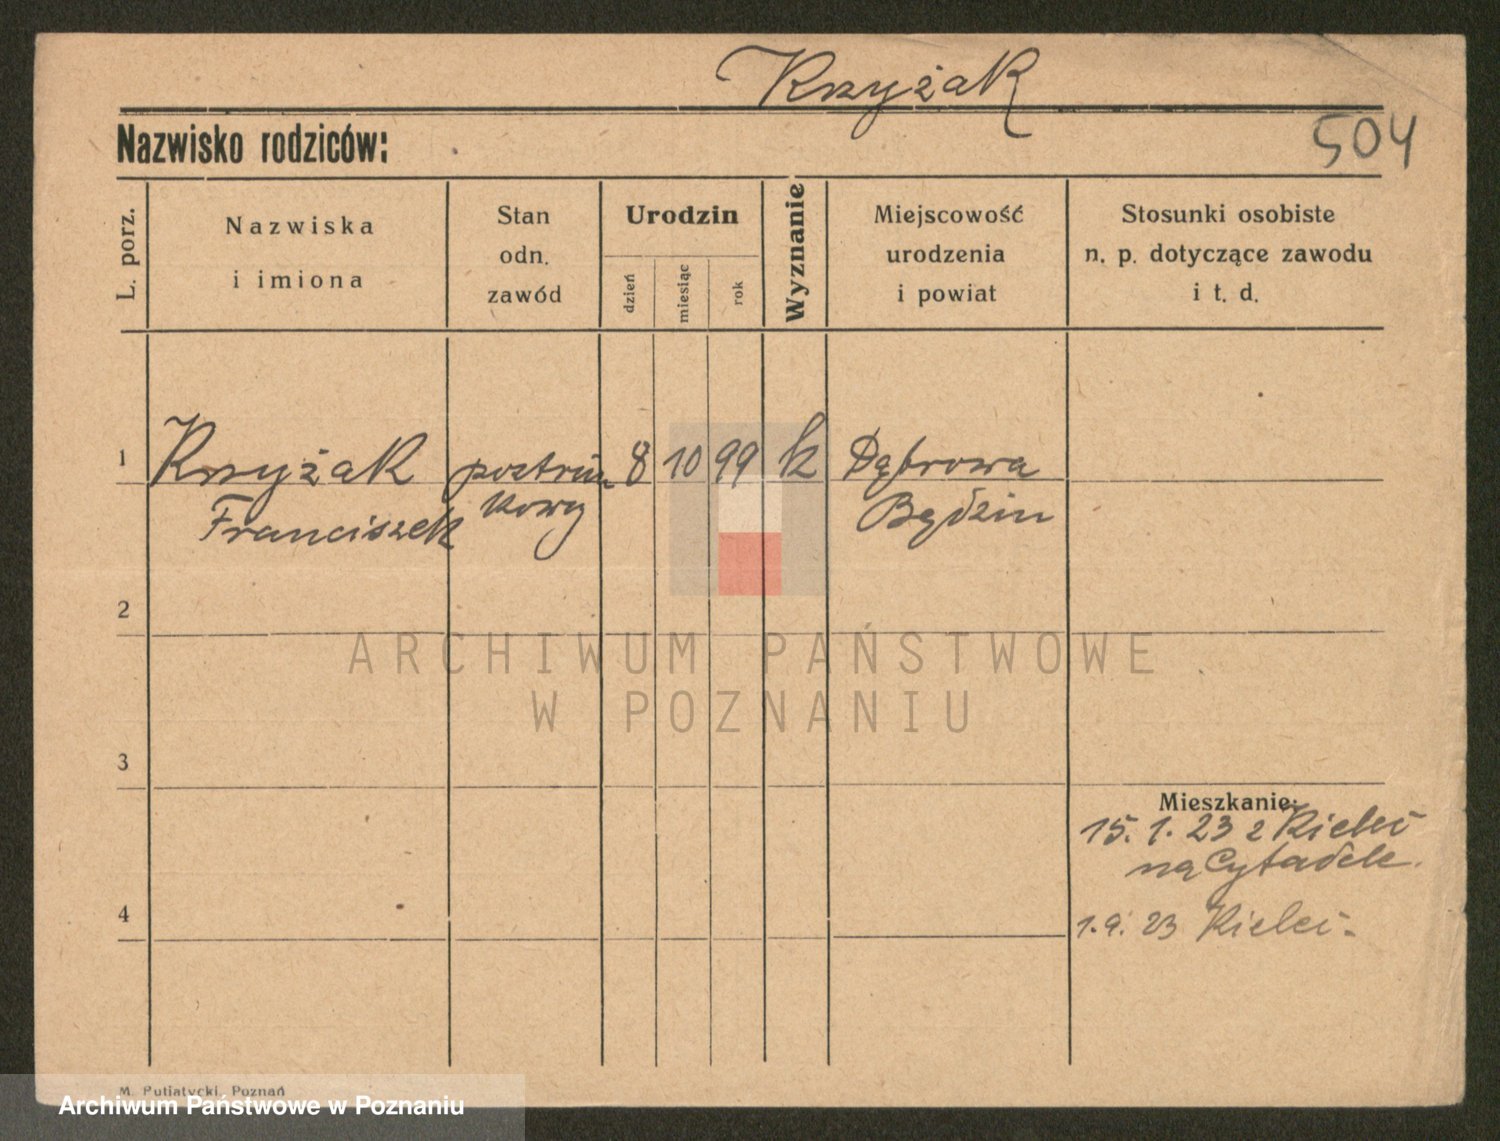 Krzyżak
504
Nazwisko rodziców:
L. porz.
Nazwiska
i imiona
Stan
odn.
zawód
Urodzin
dzień
miesiąc
rok
Wyznanie
Miejscowość
urodzenia
i powiat
Stosunki osobiste
n. p. dotyczące zawodu
i t. d.
1 Krzyżak postrun 8 10 99 k Dąbrowa
Franciszek kowy Będzin
2
ARCHIWUM PAŃSTWOWE
W POZNANIU
3
Mieszkanie:
15. 1. 23 z Kielc
na Cytadele.
4
1. 9. 23 Kielce.
M. Putiatycki, Poznań
Archiwum Państwowe w Poznaniu